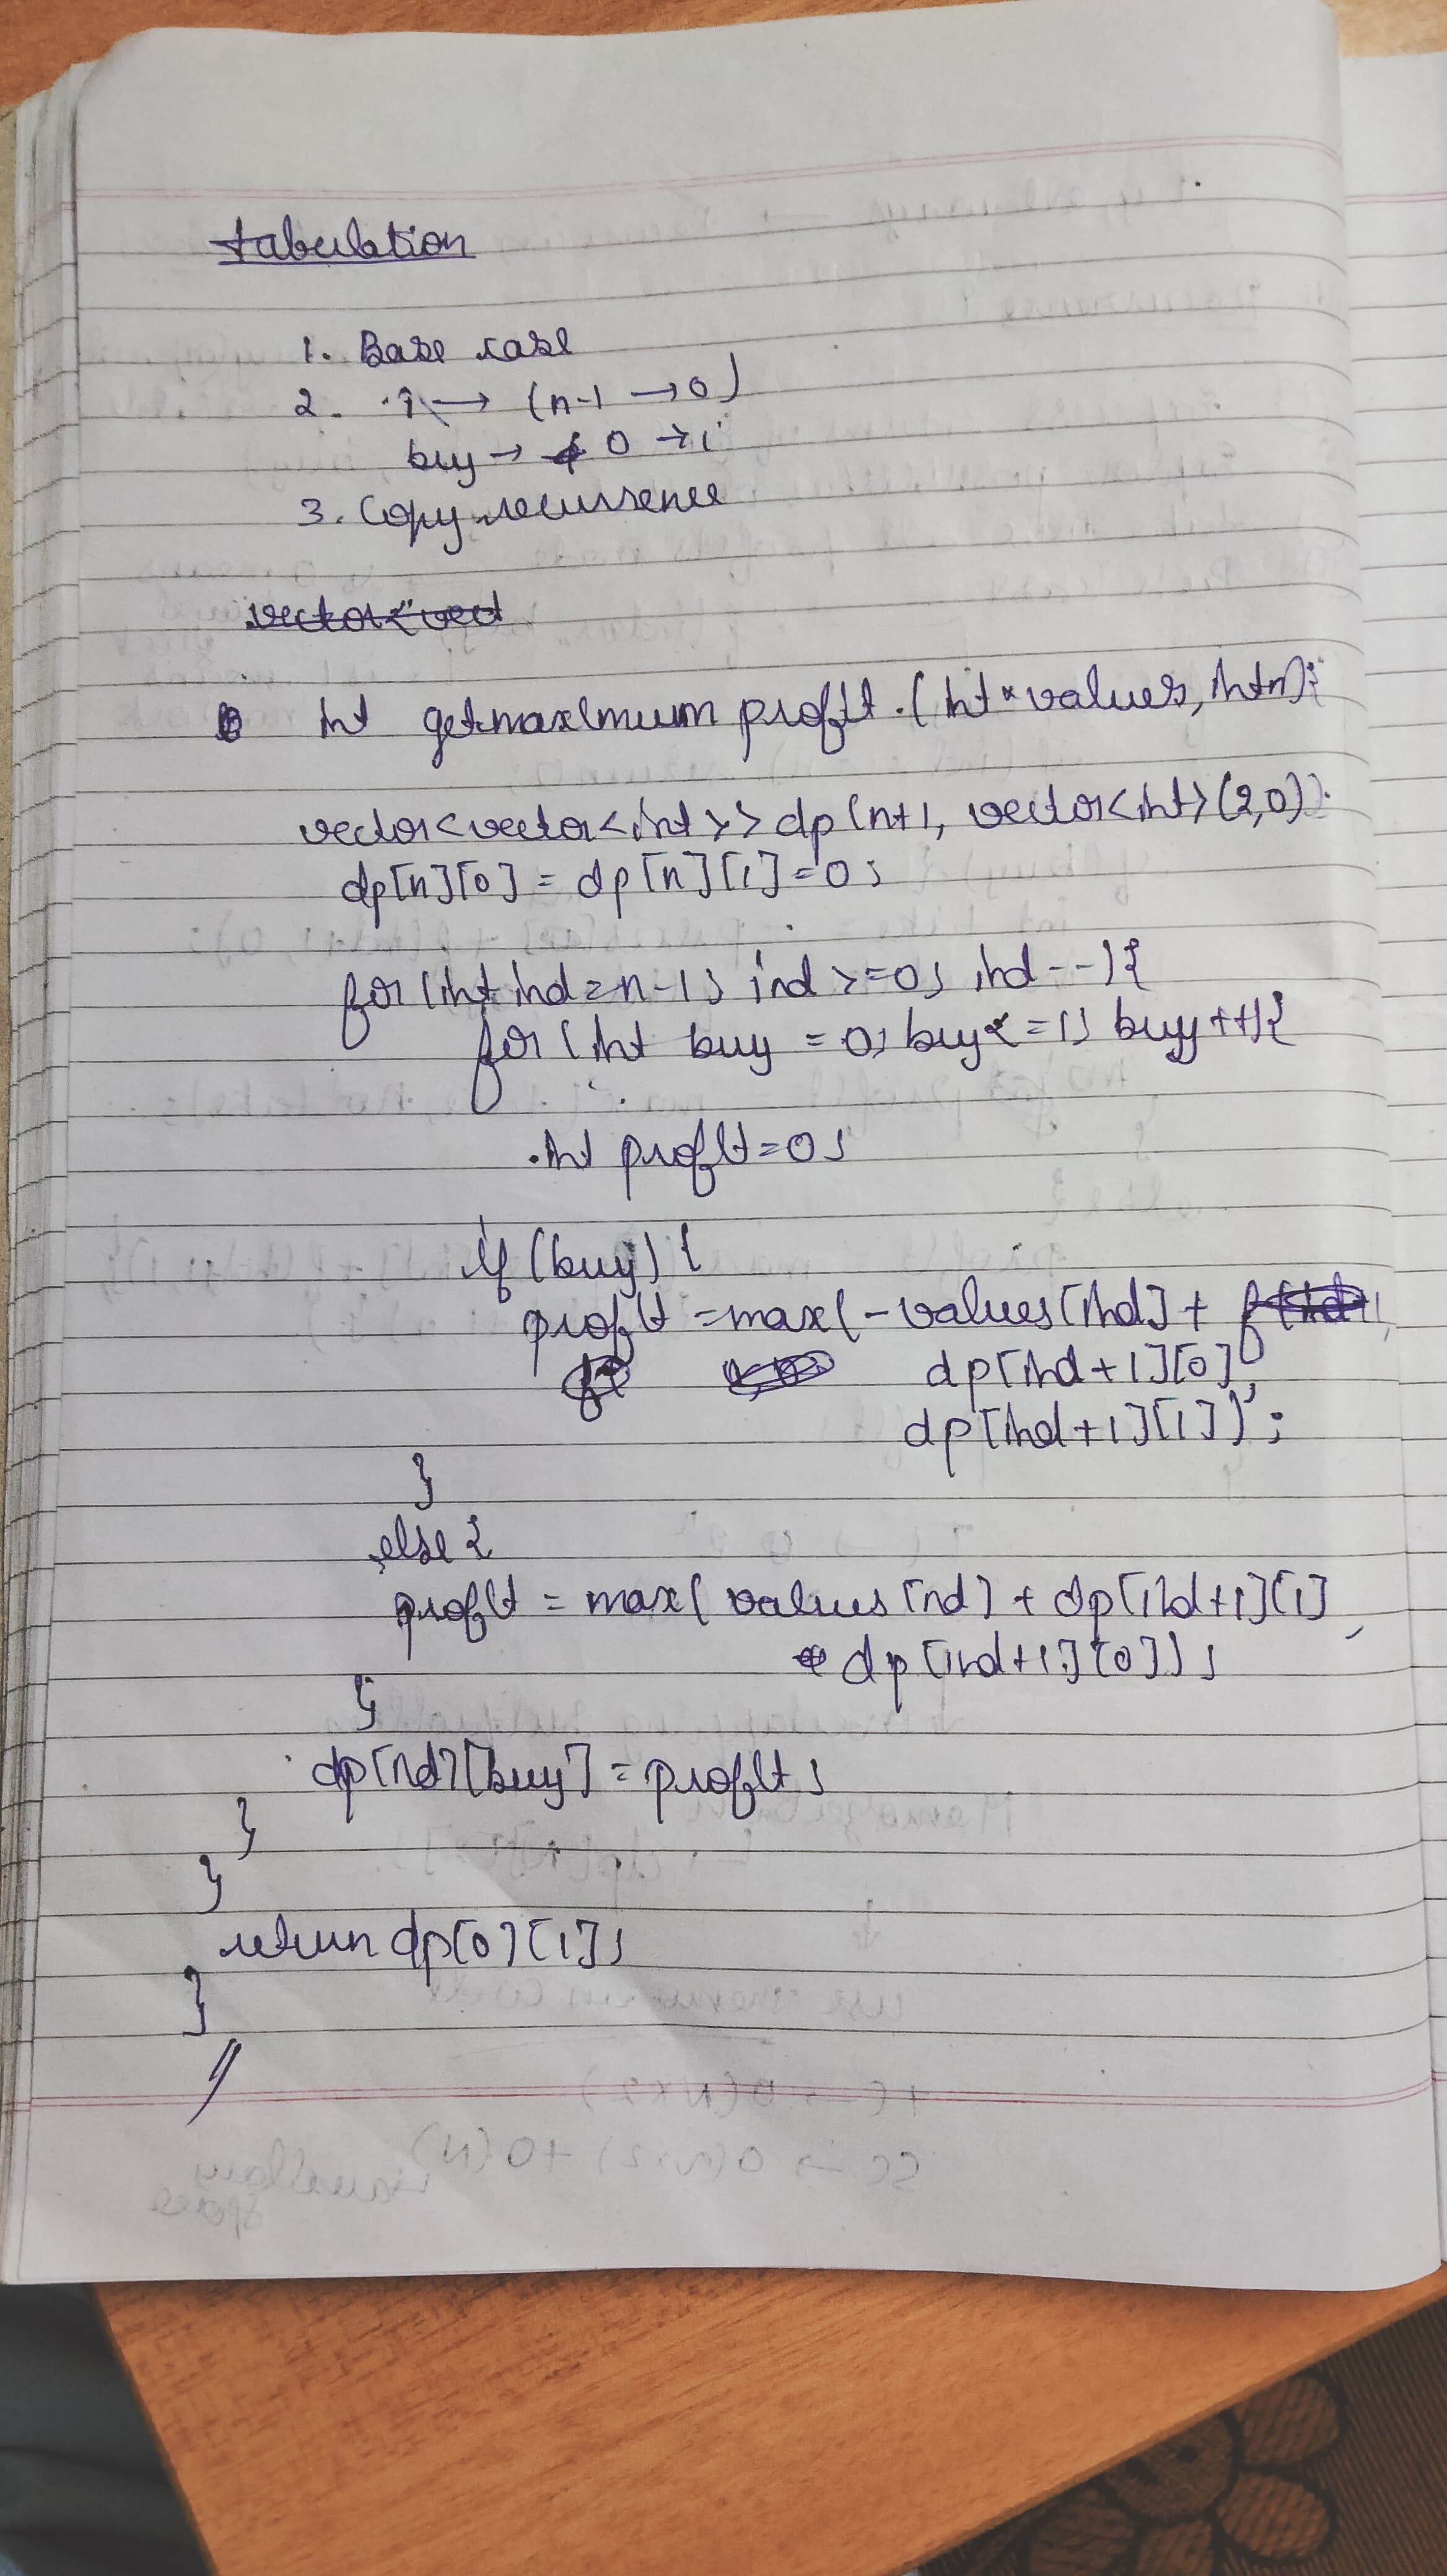 tabulation
1. Base case
2. i → (n-1 → 0)
buy → 0 → 1
3. Copy recurrence
vector<vect
int getmaximum profit (int *values, int n){
vector<vector<int>> dp (n+1, vector<int>(2,0));
dp[n][0] = dp[n][1] = 0;
for(int ind = n-1; ind >= 0; ind --){
for(int buy = 0; buy <= 1; buy ++){
int profit = 0;
if (buy) {
profit = max(-values[ind] +
dp[ind+1][0],
dp[ind+1][1]);
}
else {
profit = max( values[ind] + dp[ind+1][1],
dp[ind+1][0]);
}
dp[ind][buy] = profit;
}
}
return dp[0][1];
}